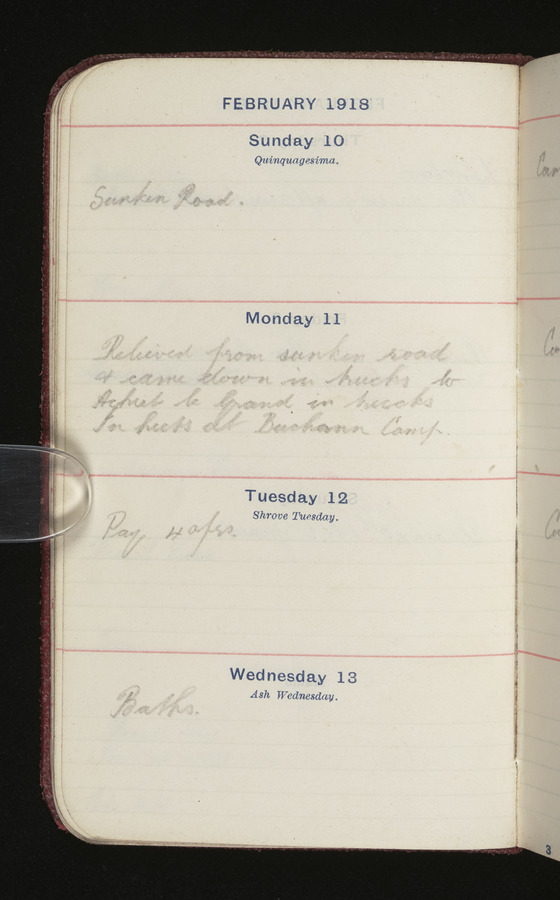 FEBRUARY 1918
Sunday 10
Quinquagesima.
Sunken Road.
Monday 11
Relieved from sunken road
& came down in trucks to
Achiet le Grand in trucks
In huts at Buchann Camp.
Tuesday 12
Shrove Tuesday.
Pay 40 frs.
Wednesday 13
Ash Wednesday.
Baths.
3